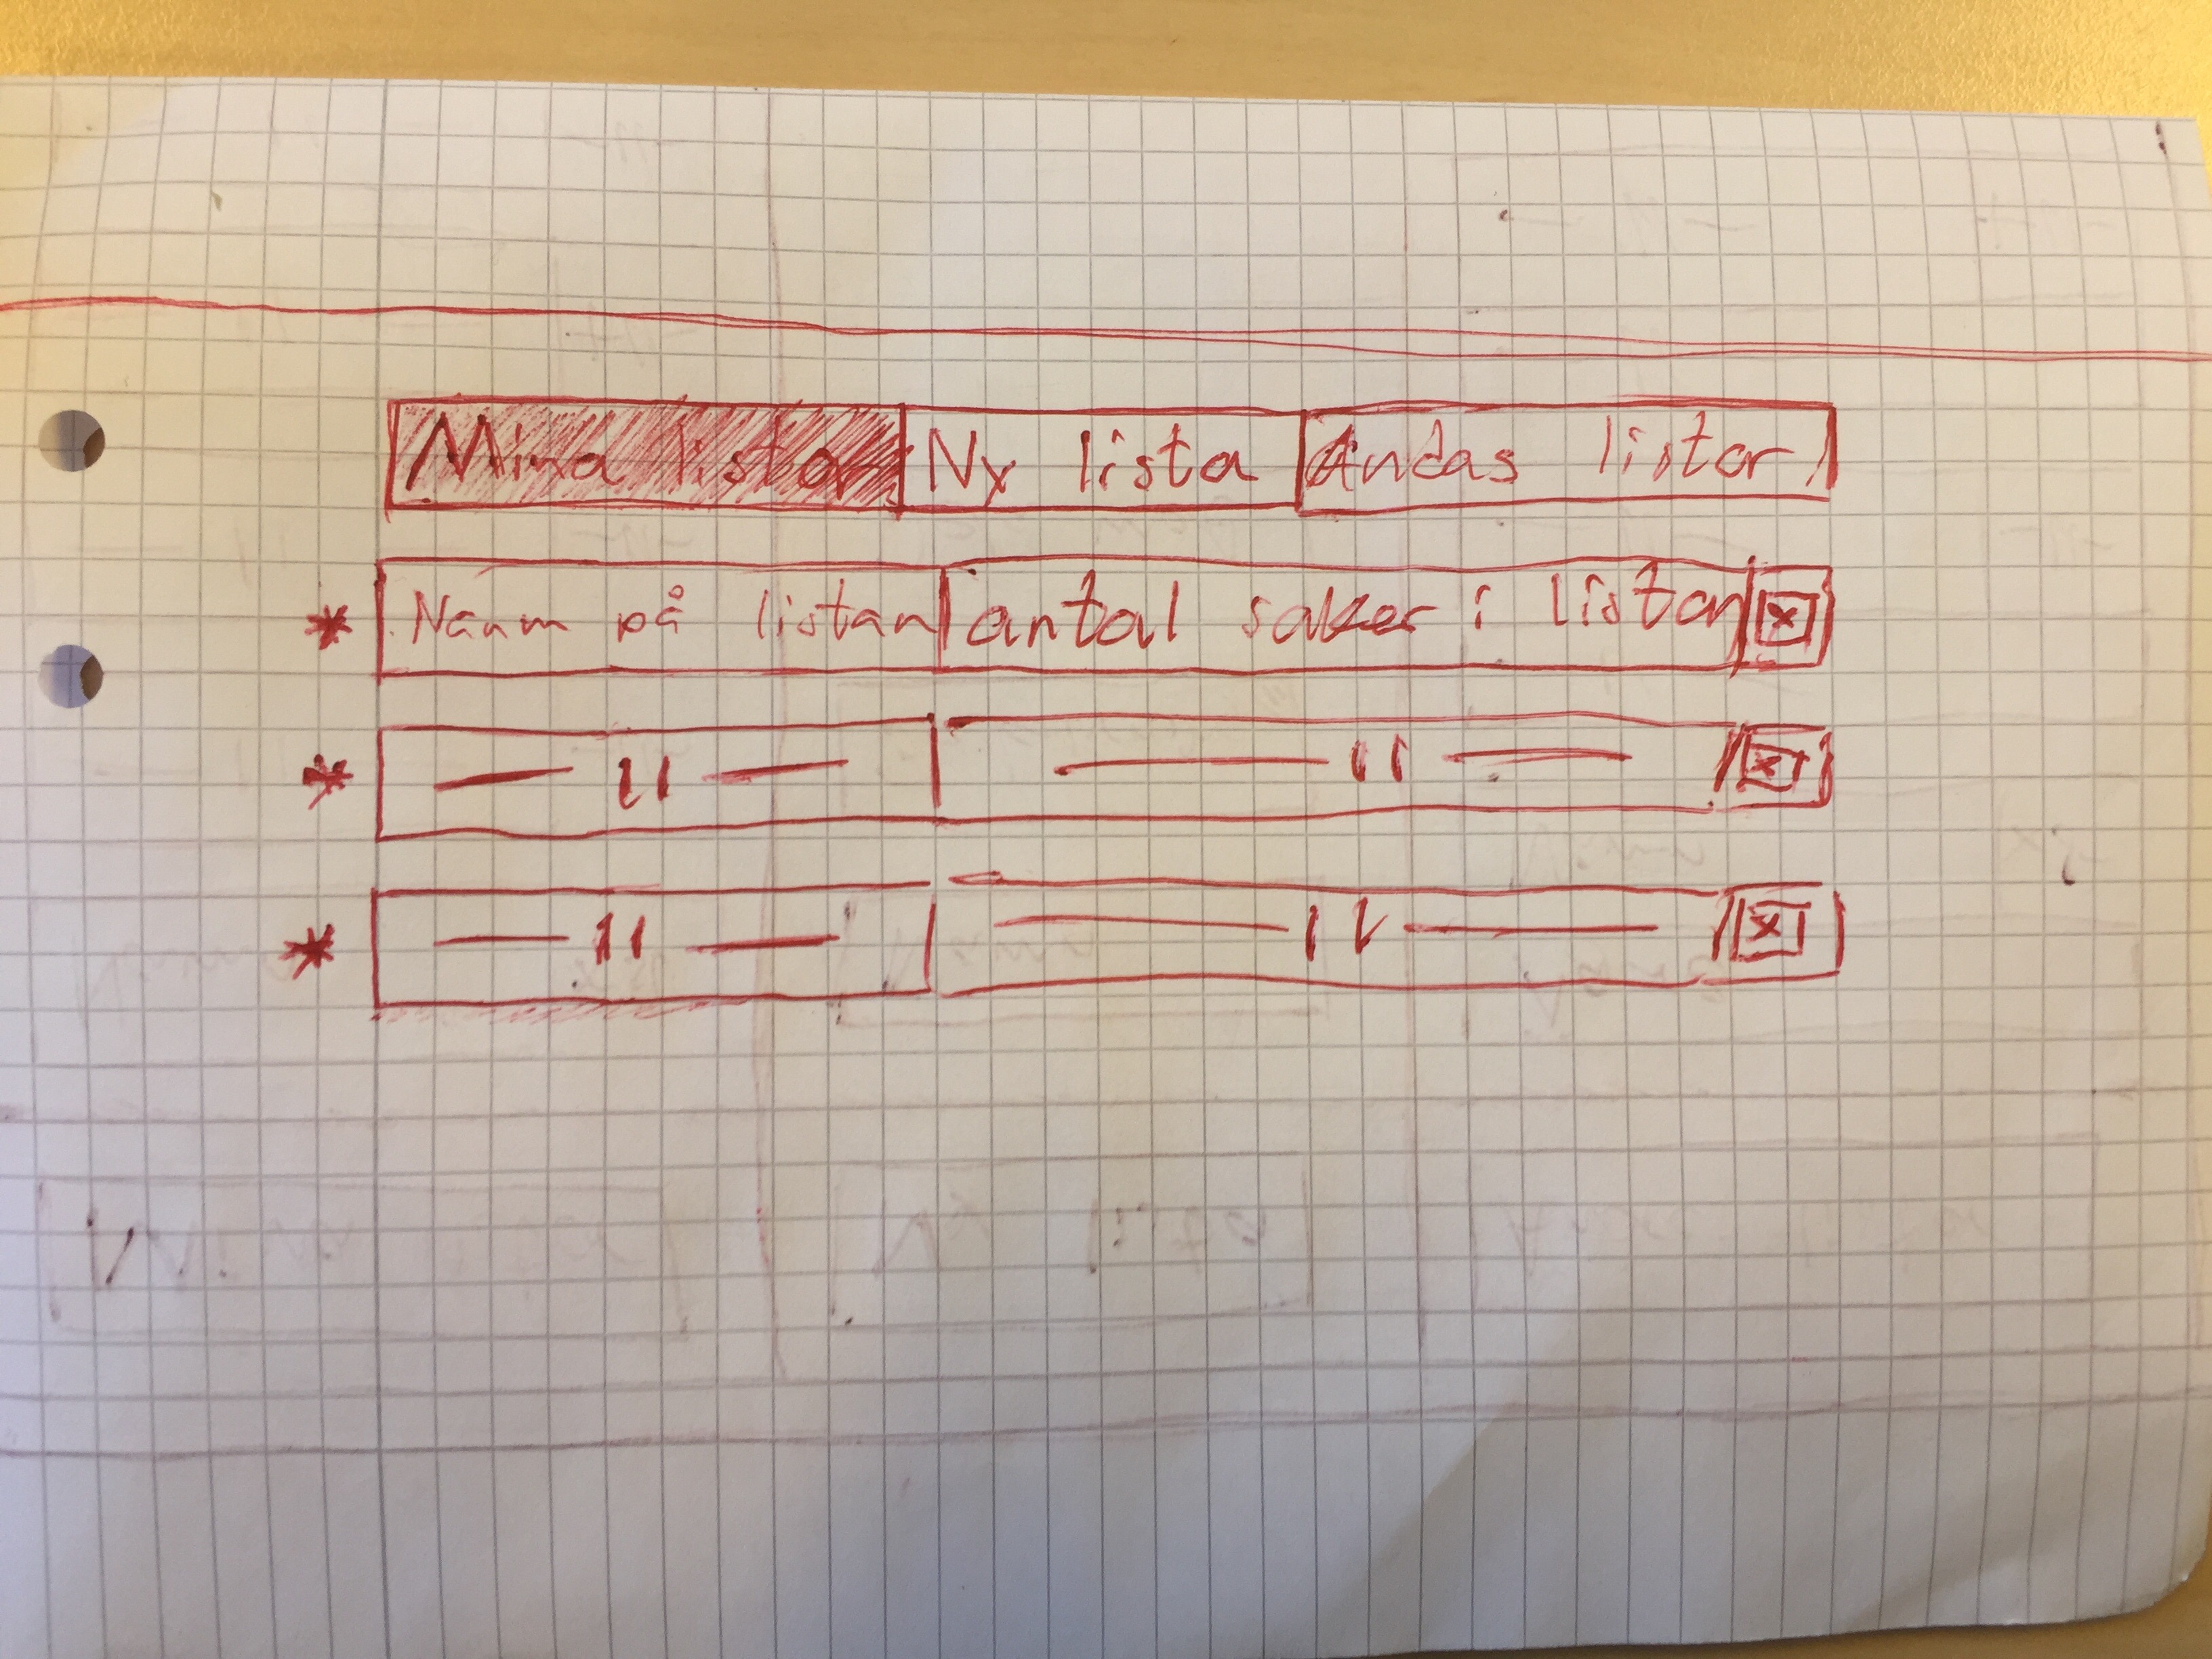 Mina listor Ny lista Andas listor
* Namn på listan antal saker i listan x
* — 11 — — 11 — x
* — 11 — — 11 — x